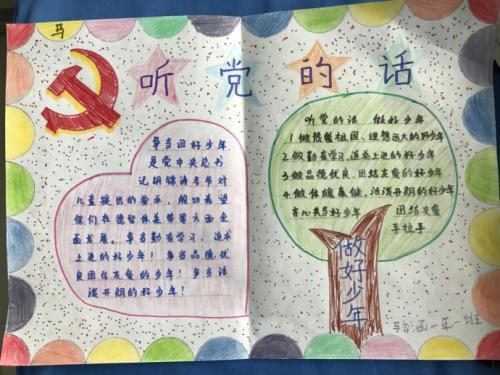 马
听党的话
争当四好少年
是党中央总书
记胡锦涛爷爷对
儿童提出的要求,殷切希望
他们在德智体美等等方面全
面发展。争当勤奋学习,追求
上进的好少年!争当品德优
良团结友爱的少年!争当活
泼开朗的好少年!
听党的话 做好少年
1.做热爱祖国,理想远大的好少年
2.做勤奋学习,追求上进的好少年
3.做品德优良,团结友爱的好少年
4.做体魄康健,活泼开朗的好少年
齐心共当好少年 团结友爱
手拉手
做好少年
一年一班